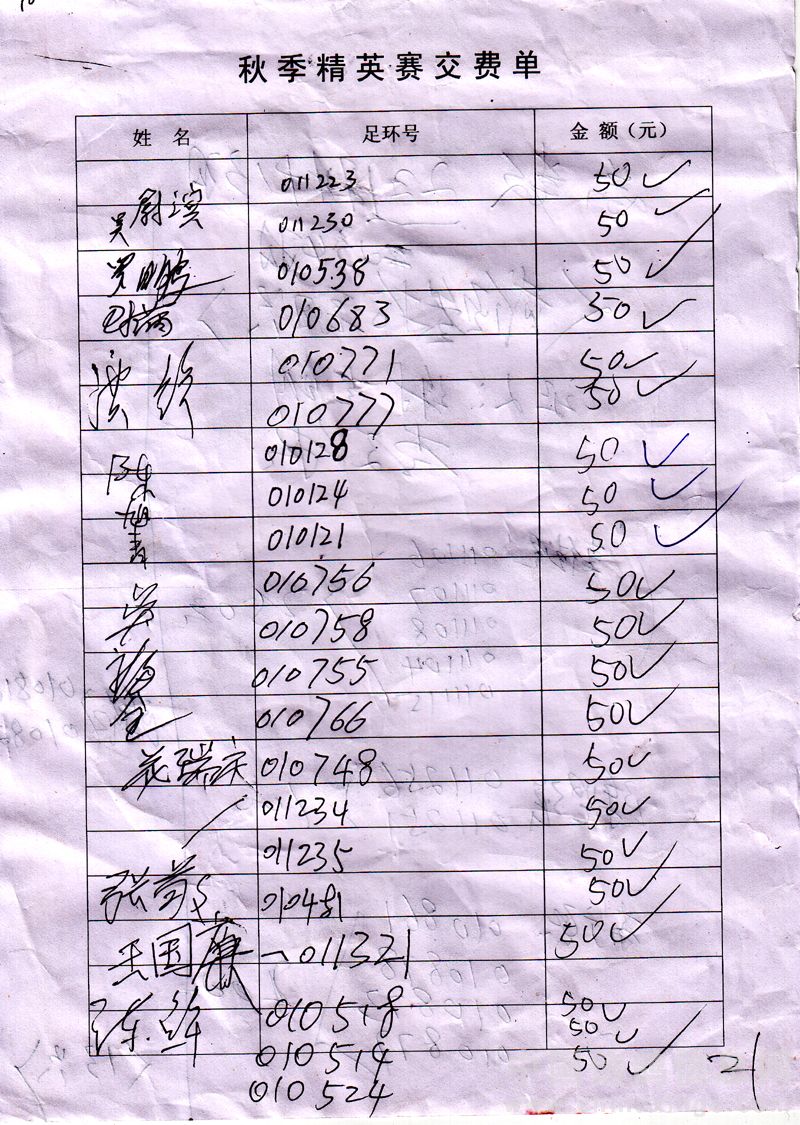 秋季精英赛交费单
姓 名 足环号 金 额（元）
011223 50
吴尉滨 011230 50
010538 50
010683 50
010771 50
010777 50
010128 50
陈旭春 010124 50
010121 50
010756 50
吴 010758 50
010755 50
010766 50
花瑞云 010748 50
011234 50
011235 50
张 010481 50
王国康 011321 50
010518 50
010514 50
010524 50
21